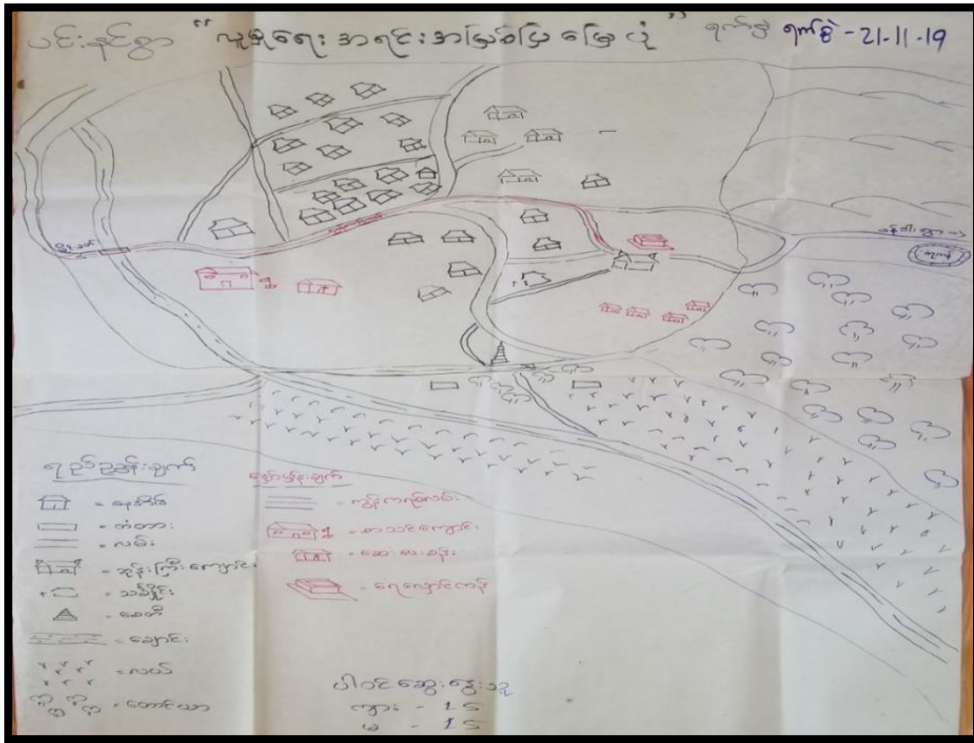 ပင်းနင်ရွာ "လူမှုရေး အရင်းအမြစ်ပြ မြေပုံ" ရက်စွဲ ရက်စွဲ - 21-11-19
ရည်ညွှန်းချက်
= နေအိမ်
= တံတား
= လမ်း
= ဘုန်းကြီးကျောင်း
= စေတီ
= ချောင်း
= လယ်
= တောင်ယာ
မျှော်မှန်းချက်
= ကွန်ကရစ်လမ်း
= စာသင်ကျောင်း
= ဆေးပေးခန်း
= ရေလှောင်ကန်
ပါဝင်ဆွေးနွေးသူ
ကျား - 15
မ - 15